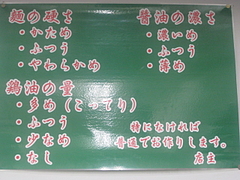 麺の硬さ
・かため
・ふつう
・やわらかめ
醤油の濃さ
・濃いめ
・ふつう
・薄め
鶏油の量
・多め(こってり)
・ふつう
・少なめ
・なし
特になければ
普通でお作りします。
店主